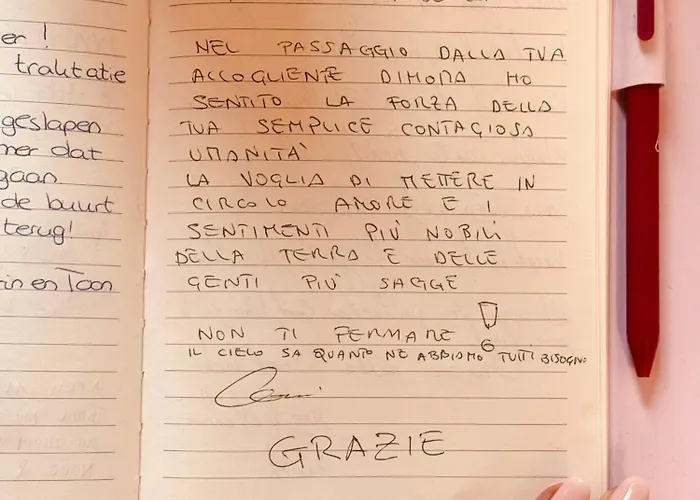 er !
traktatie
geslapen
mer dat
gaan.
de buurt
terug!
in en Toon
NEL PASSAGGIO DALLA TUA
ACCOGLIENTE DIMORA HO
SENTITO LA FORZA DELLA
TUA SEMPLICE CONTAGIOSA
UMANITA'
LA VOGLIA DI METTERE IN
CIRCOLO AMORE E I
SENTIMENTI PIU' NOBILI
DELLA TERRA E DELLE
GENTI PIU' SAGGE
NON TI FERMARE !
IL CIELO SA QUANTO NE ABBIAMO TUTTI BISOGNO
GRAZIE